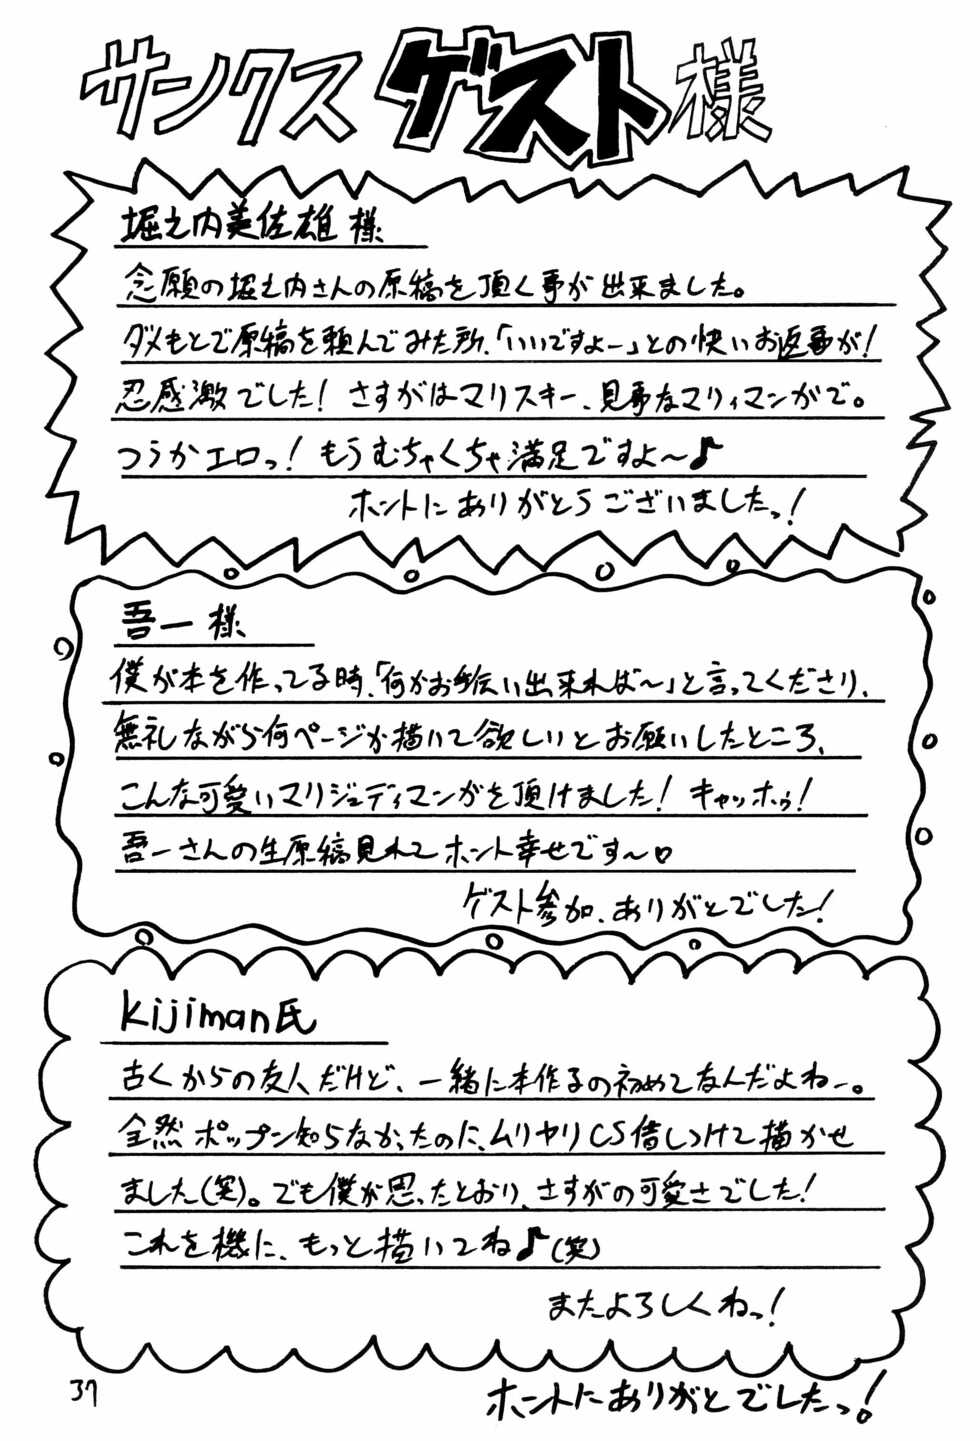 サンクスゲスト様
堀之内美佐雄様
念願の堀之内さんの原稿を頂く事が出来ました。
ダメもとで原稿を頼んでみた所、「いいですよー」との快いお返事が!
忍感激でした! さすがはマリスキー、見事なマリィマンガで。
つうかエロっ! もうむちゃくちゃ満足ですよ〜♪
ホントにありがとうございましたっ!
吾一様
僕が本を作ってる時、「何かお手伝い出来れば〜」と言ってくださり、
無礼しながら何ページか描いて欲しいとお願いしたところ、
こんな可愛いマリジュディマンガを頂けました! キャッホゥ!
吾一さんの生原稿見れてホント幸せです〜♡
ゲスト参加、ありがとでした!
kijiman氏
古くからの友人だけど、一緒に本作るの初めてなんだよねー。
全然ポップン知らなかったのに、ムリヤリCS借しつけて描かせ
ました(笑)。でも僕が思ったとおり、さすがの可愛さでした!
これを機に、もっと描いてね♪(笑)
またよろしくねっ!
37
ホントにありがとでしたっ!